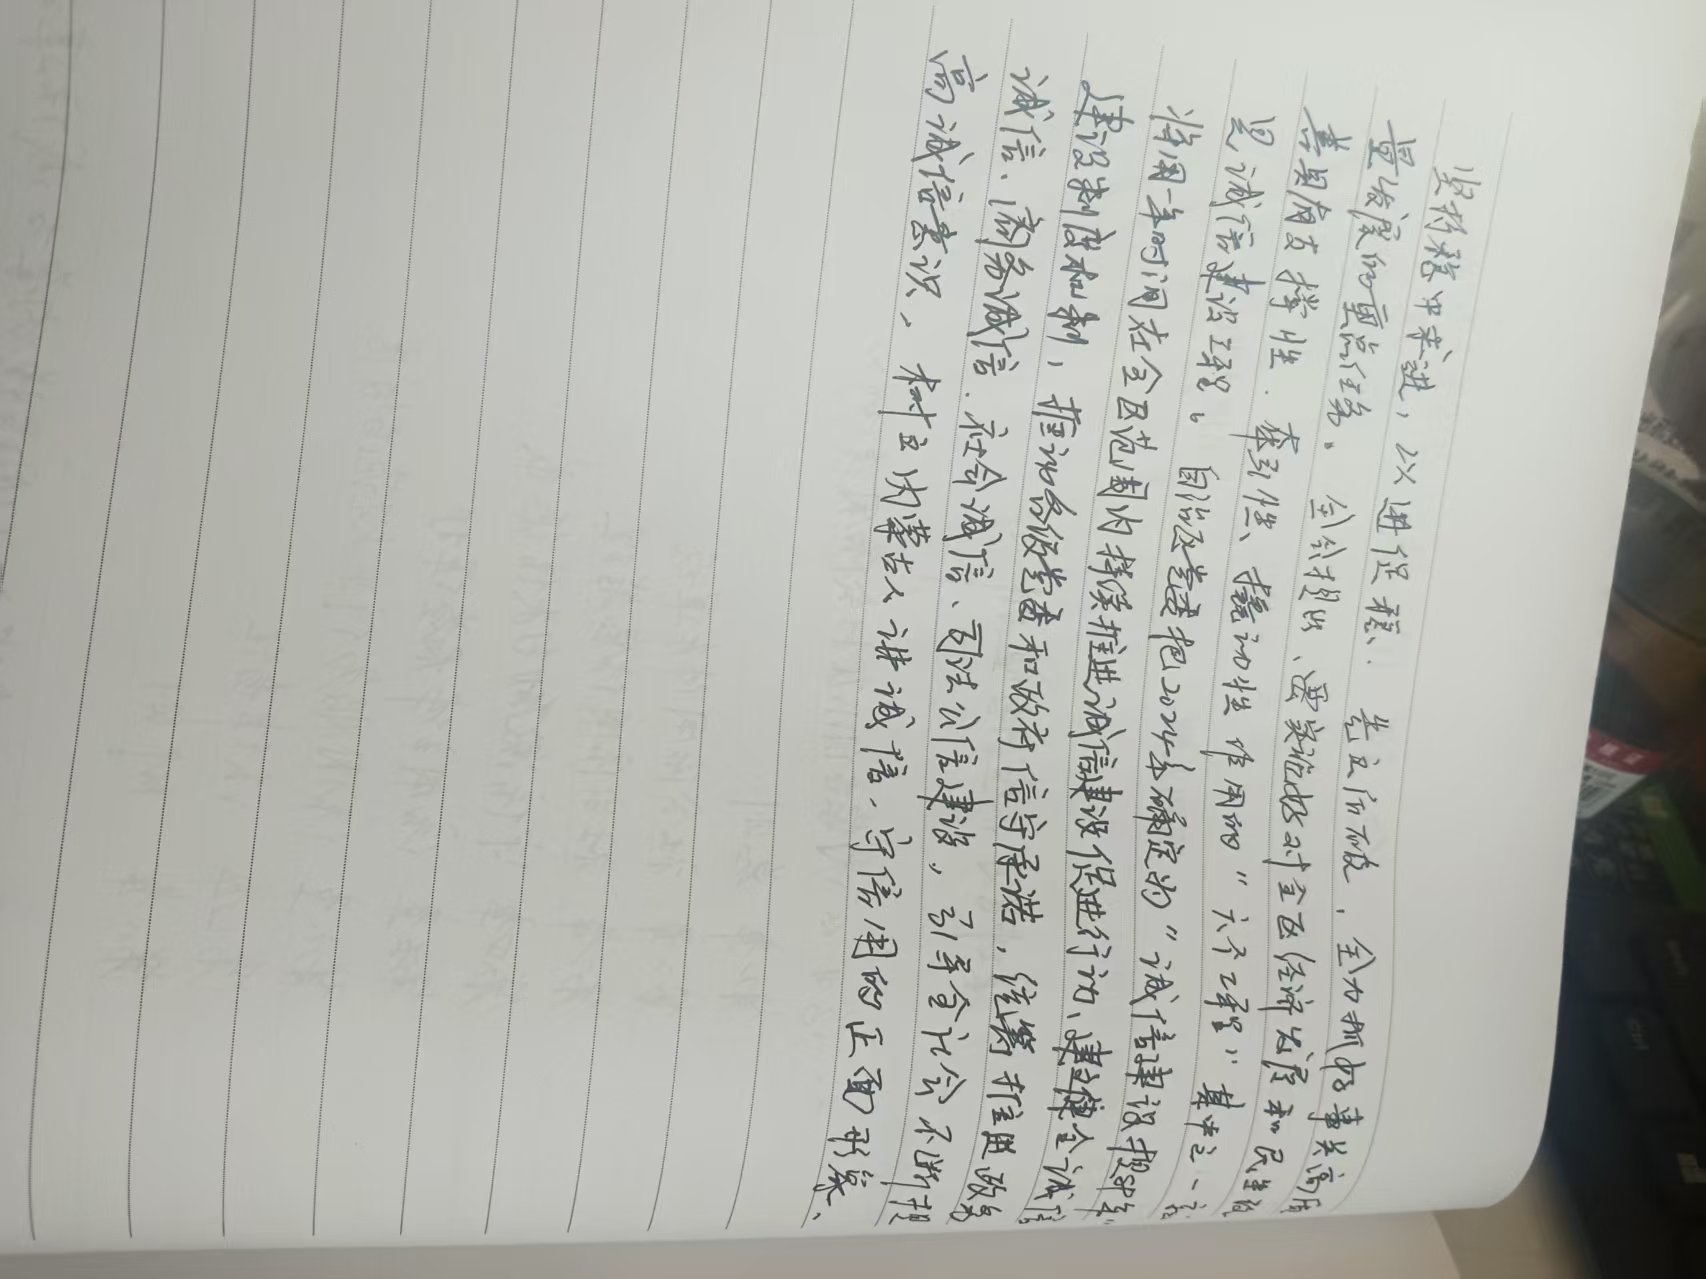 坚持稳中求进，以进促稳、先立后破，全力抓好事关高质
量发展的重点任务。全会提出、要实施好对全区经济发展和民生改
善具有支撑性、牵引性、撬动性作用的“六个工程”其中之一就
是诚信建设工程。自治区党委把2024年确定为“诚信建设提升年”
将用一年时间在全区范围内持续推进诚信建设促进行动、建立健全诚信
建设制度机制，推动各级党委和政府信守承诺，统筹推进政务
诚信、商务诚信、社会诚信、司法公信建设，引导全社会不断提
高诚信意识，树立内蒙古人讲诚信、守信用的正面形象、